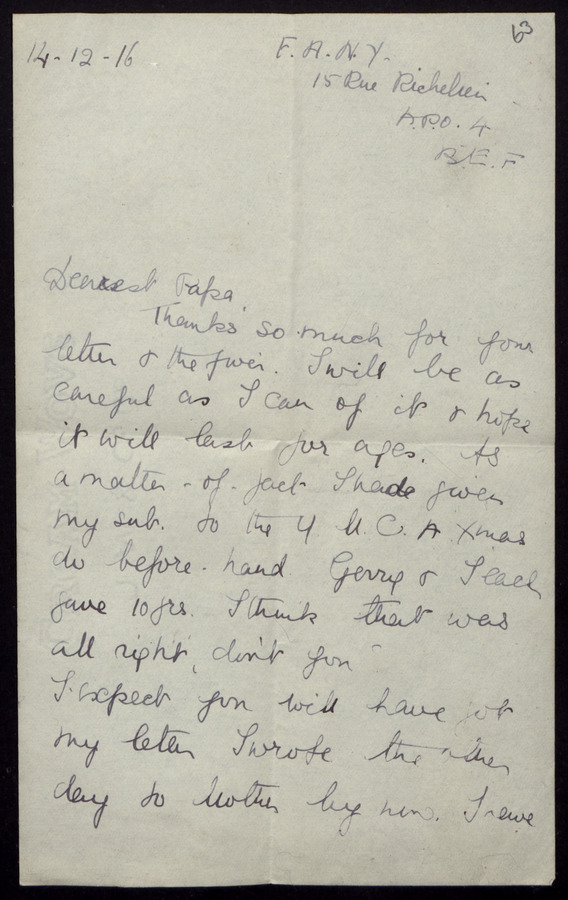 63
14-12-16
F.A.N.Y.
15 Rue Richelieu
A.P.O. 4
B.E.F
Dearest Papa
Thanks so much for your
letter & the fiver. I will be as
careful as I can of it & hope
it will last for ages. As
a matter-of-fact I had given
my sub. to the Y.M.C.A Xmas
do before-hand. Gerry & I each
gave 10 frs. I think that was
all right, don't you
I expect you will have got
my letter I wrote the other
day to Mother by now. I